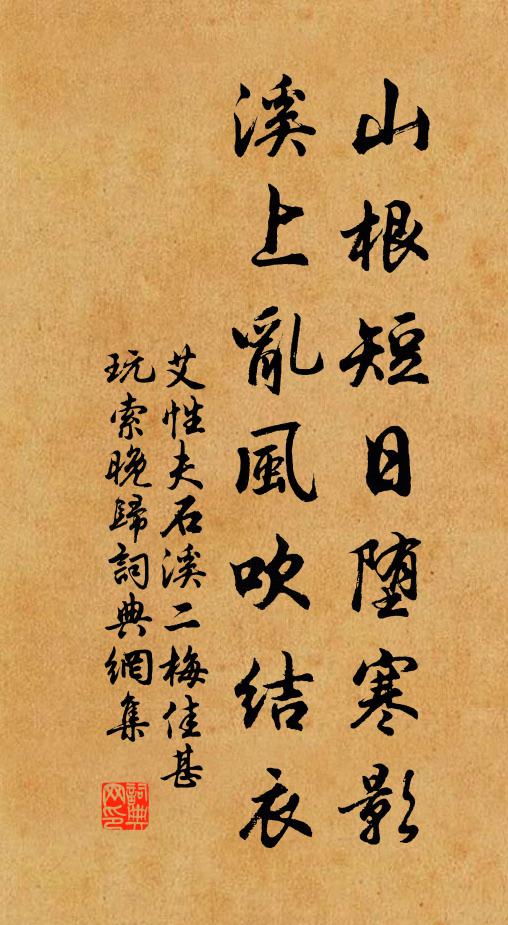 山根短日堕寒影
溪上亂風吹結衣
艾性夫石溪二梅佳甚
玩索晚歸詞典網集
詞典
网印